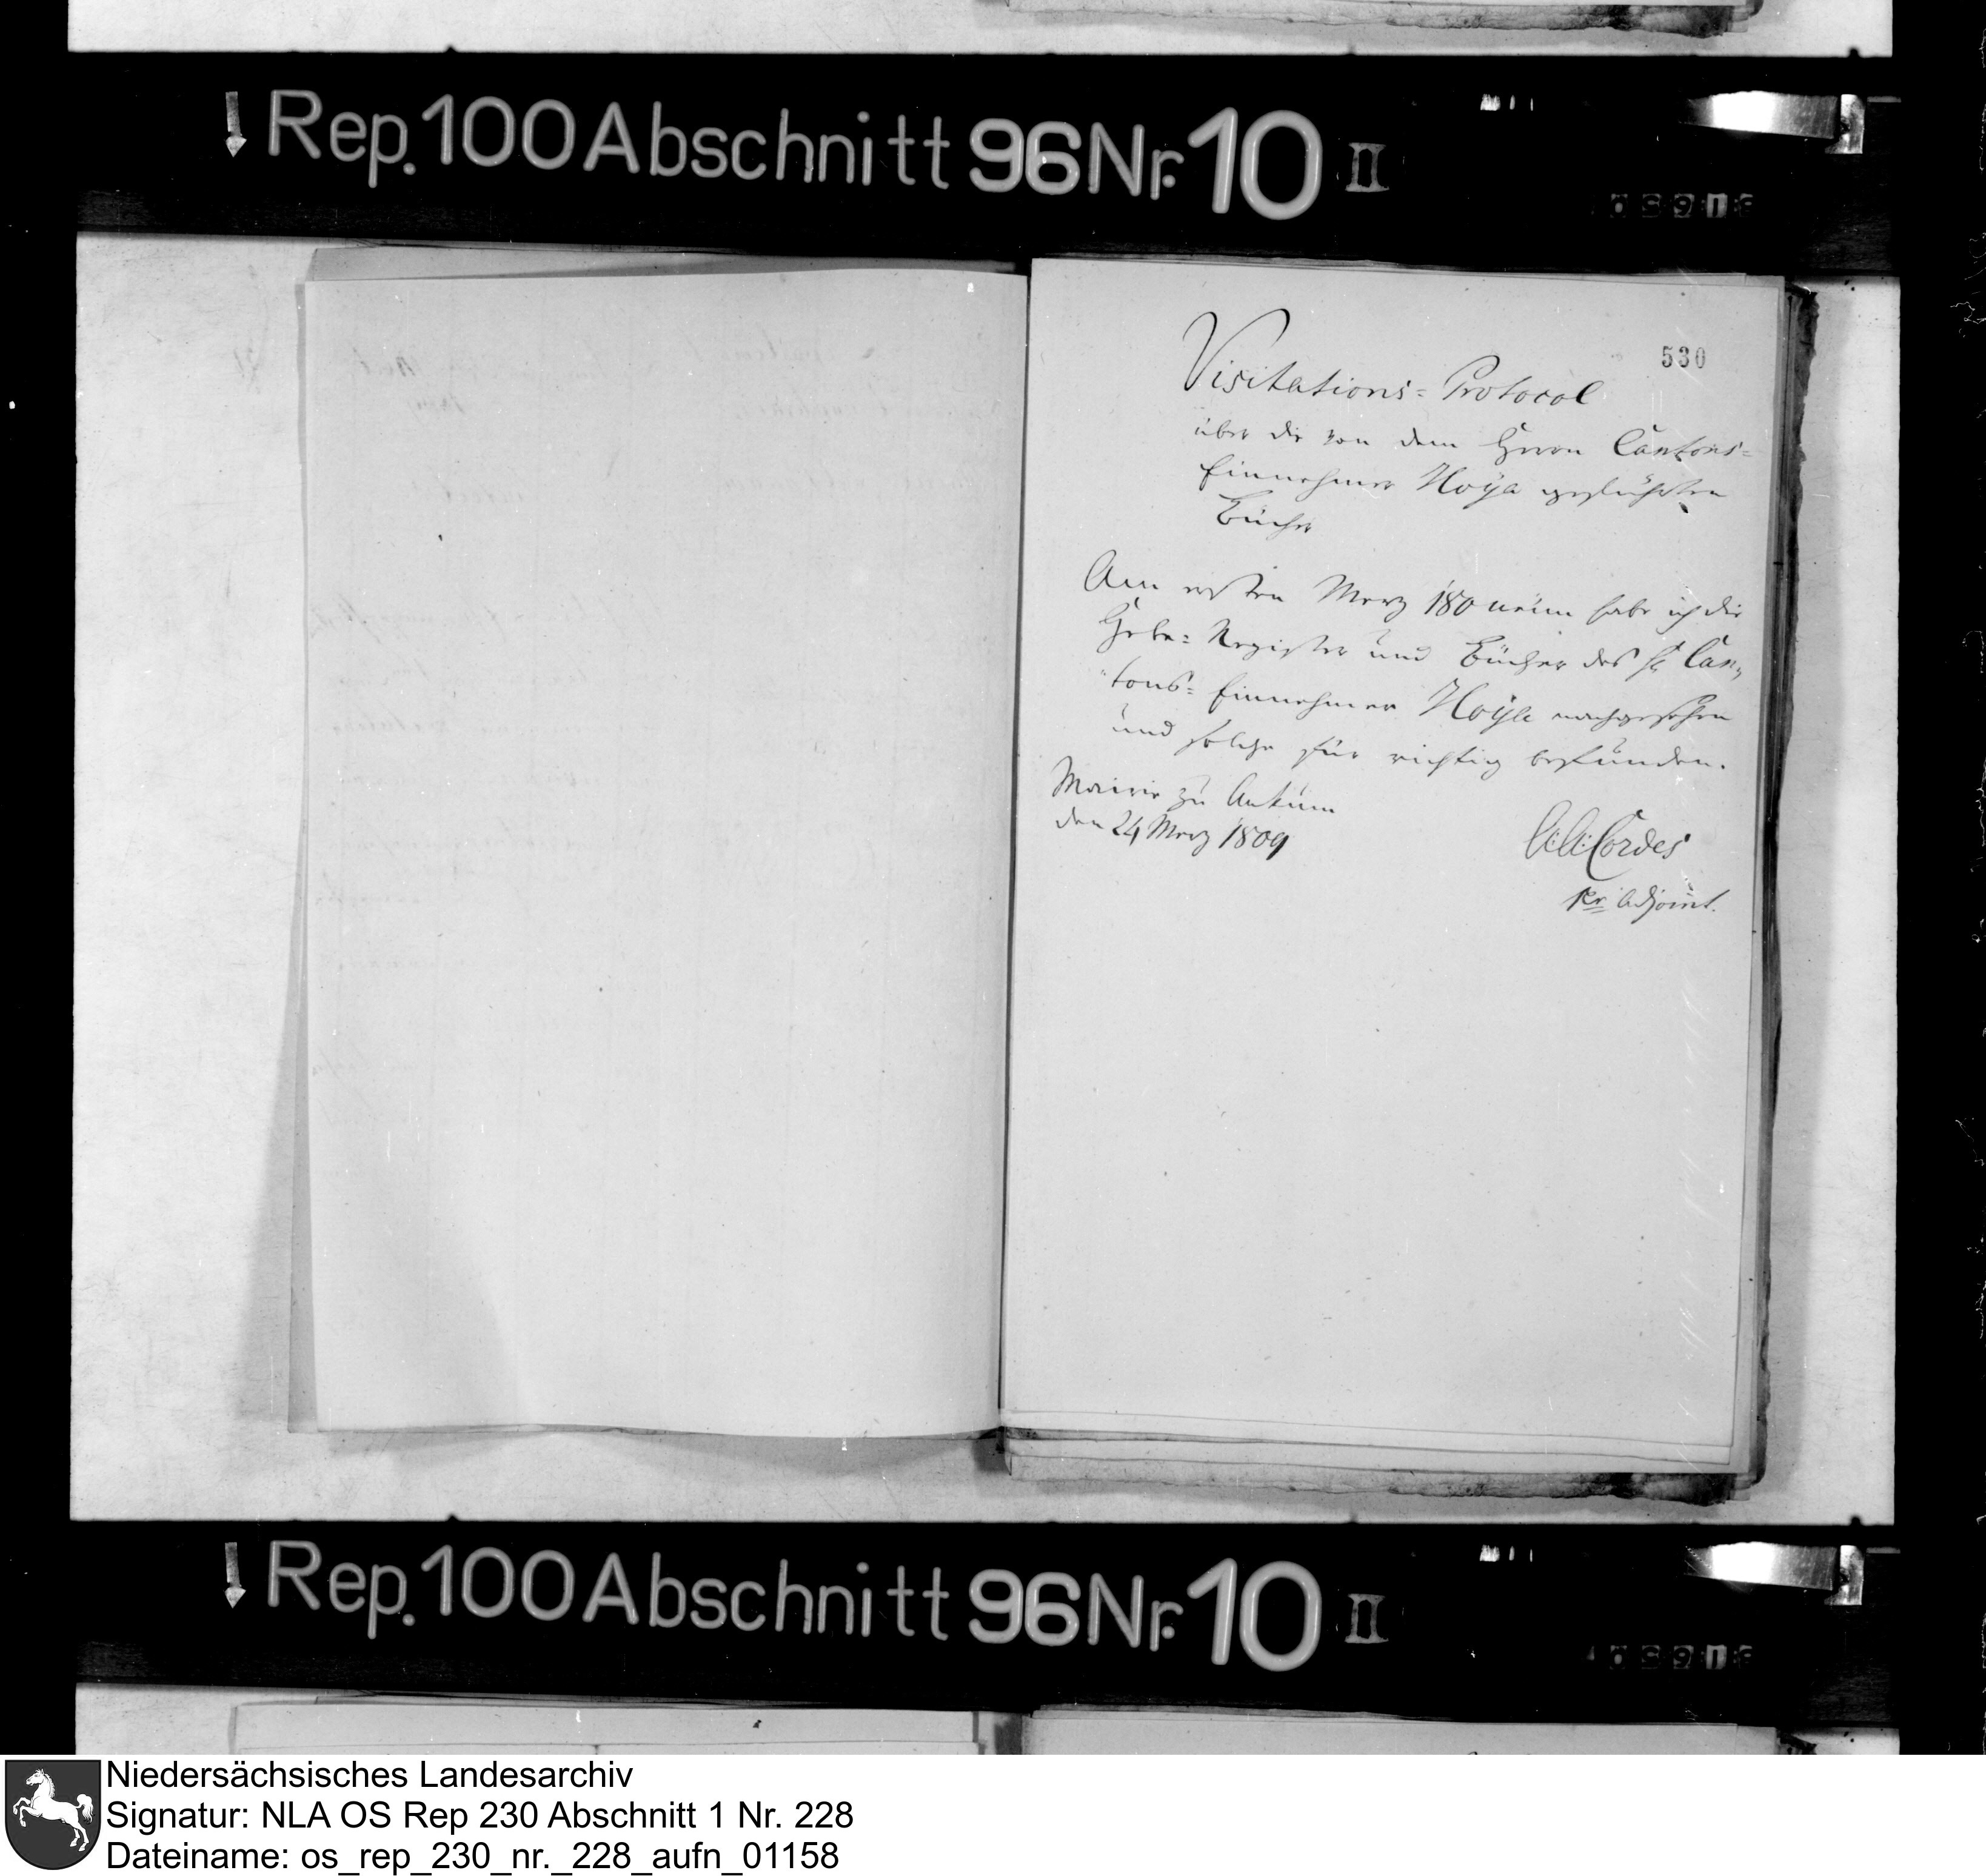 Rep. 100 Abschnitt 96 Nr. 10 II
530
Visitations=Protocol
über die von dem Herrn Cantons=
Einnehmer Hoÿa geführten
Bücher
Am ersten Merz 180 neun habe ich die
Hebe=Register und Bücher des H. Can„
„tons=Einnehmer Hoÿa nachgesehen
und solche für richtig befunden.
Mairie zu Ankum
den 24 Merz 1809
Cordes
Adjoint.
Rep. 100 Abschnitt 96 Nr. 10 II
Niedersächsisches Landesarchiv
Signatur: NLA OS Rep 230 Abschnitt 1 Nr. 228
Dateiname: os_rep_230_nr._228_aufn_01158